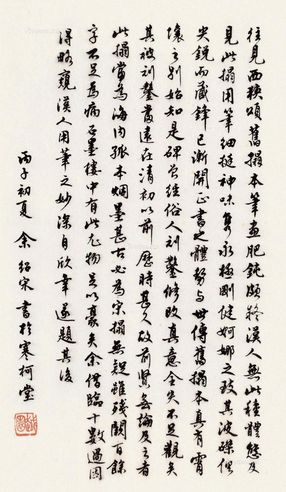 往見西狹頌舊搨本筆畫肥鈍頗疑漢人無此種體態及
見此搨用筆細挺神味隽永極剛健婀娜之致其波磔俱
尖銳而藏鋒已漸開正書之體勢與世傳舊搨本真有霄
壤之別始知是碑曾經俗人刓鑿修改真意全失不足觀矣
其被刓鑿當遠在清初以前歷時甚久故前賢無論及之者
此搨當為海內孤本烟墨甚古必為宋搨無疑雖殘闕百餘
字不足為病石墨樓中有此尤物足以豪矣余借臨十數過因
得略窺漢人用筆之妙深自欣幸遂題其後
丙子初夏余紹宋書於寒柯堂